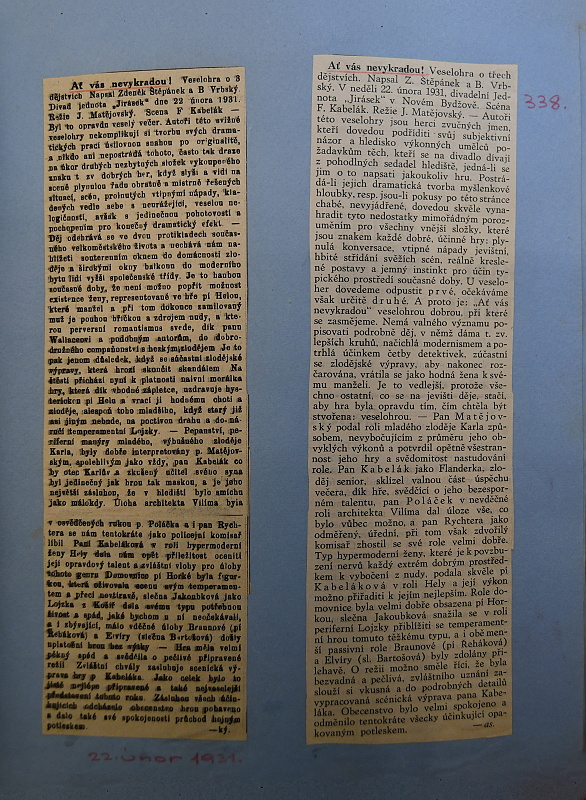 Ať vás nevykradou! Veselohra o 3
dějstvích Napsal Zdeněk Štěpánek a B Vrbský.
Divad jednota „Jirásek“ dne 22 února 1931.
Režie J. Matějovský. Scena F Kabelák —
Byl to opravdu veselý večer. Autoři této svižné
veselohry nekomplikují si tvorbu svých drama-
tických prací úsilovnou snahou po originalitě,
a nikdo ani nepostrádá tohoto, často tak draze
na úkor druhých nezbytných složek vykoupeného
znaku t. zv dobrých her, když slyší a vidí na
scéně plynulou řadu obratně a mistrně řešených
situací, scén, protnutých vtipnými nápady, kla-
dených vedle sebe s neurážející, veselou ne-
logičností, avšak s jedinečnou pohotovostí a
pochopením pro konečný dramatický efekt. —
Děj odehrává se ve dvou protikladech součas-
ného velkoměstského života a nechává nám na-
hlížeti souterenním oknem do domácnosti zlo-
děje a širokými okny balkonu do moderního
bytu lidí vyšší společenské třídy. Je to hanbou
současné doby, že není možno popříti možnost
existence ženy, representované ve hře pí Helou,
která manžel a při tom dokonce zamilovaný
muž je pouhou hříčkou a zdrojem nudy, a kte-
rou perversní romantismus svede, dík panu
Wallaceovi a podobným autorům, do dobro-
družného companionství s hezkým zlodějem. Je to
pak jenom důsledek, když se súčastní zlodějské
výpravy, která hrozí skončiti skandálem Na
štěstí přichází nyní k platnosti naivní morálka
hry, která dík vhodné zápletce, uzdravuje hys-
terickou pí Helu a vrací jí hodnému choti a
zloděje, alespoň toho mladšího, když starý již
ani jiným nebude, na poctivou dráhu a do ná-
ručí temperamentní Lojsky. — Pepanství, pe-
riferní manýry mladého, výbušného zloděje
Karla, byly dobře interpretovány p. Matějov-
ským, spolehlivým jako vždy, pan Kabelák co
by otec Karlův a zkušený učitel svého syna
byl jedinečný jak hrou tak maskou, a je jeho
největší zásluhou, že v hledišti bylo smíchu
jako málokdy. Úloha architekta Vilíma byla
v osvědčených rukou p. Poláčka a i pan Rych-
tera se nám tentokráte jako policejní komisař
líbil Paní Kabeláková v roli hypermoderní
ženy Hely dala nám opět příležitost oceniti
její opravdový talent a zvláštní vlohy pro úlohy
tohoto genru Domovnice pí Horké byla figur-
kou, která oživovala scenu svým temperamen-
tem a přeci nevtíravě, slečna Jakoubková jako
Lojzka z Košíř dala svému typu potřebnou
živost a spád, jaké bychom u ní neočekávali,
a i zbývající, málo vděčné úlohy Braunové (pí
Řeháková) a Elvíry (slečna Bartošová) došly
uplatnění hrou bez výtky — Hra měla velmi
pěkný spád a svědčila o pečlivě připravené
režii Zvláštní chvály zasluhuje scenická vý-
prava hry p Kabeláka. Jako celek bylo to
jistě nejlépe připravené a také nejveselejší
představení tohoto roku. Zásluhou všech účin-
kujících odcházelo obecenstvo hrou pobaveno
a dalo také své spokojenosti průchod hojným
potleskem. —ký.
22. únor 1931.
Ať vás nevykradou! Veselohra o třech
dějstvích. Napsal Z. Štěpánek a B. Vrb-
ský. V neděli 22. února 1931, divadelní Jed-
nota „Jirásek“ v Novém Bydžově. Scéna
F. Kabelák. Režie J. Matějovský. — Autoři
této veselohry jsou herci zvučných jmen,
kteří dovedou podříditi svůj subjektivní
názor a hledisko výkonných umělců po-
žadavkům těch, kteří se na divadlo dívají
z pohodlných sedadel hlediště, jedná-li se
jim o to napsati jakoukoliv hru. Postrá-
dá-li jejich dramatická tvorba myšlenkové
hloubky, resp. jsou-li pokusy po této stránce
chabé, nevyjádřené, dovedou skvěle vyna-
hradit tyto nedostatky mimořádným poroz-
uměním pro všechny vnější složky, které
jsou znakem každé dobré, účinné hry: ply-
nulá konversace, vtipné nápady jevištní,
hbité střídání svěžích scén, reálně kresle-
né postavy a jemný instinkt pro účin ty-
pického prostředí současné doby. U veselo-
her dovedeme odpustit prvé, očekáváme
však určitě druhé. A proto je: „Ať vás
nevykradou“ veselohrou dobrou, při které
se zasmějeme. Nemá valného významu po-
pisovati podrobně děj, v němž dáma t. zv.
lepších kruhů, načichlá modernismem a po-
trhlá účinkem četby detektivek, zúčastní
se zlodějské výpravy, aby nakonec roz-
čarována, vrátila se jako hodná žena k své-
mu manželi. Je to vedlejší, protože vše-
chno ostatní, co se na jevišti děje, stačí,
aby hra byla opravdu tím, čím chtěla být
stvořena: veselohrou. — Pan Matějov-
ský podal roli mladého zloděje Karla způ-
sobem, nevybočujícím z průměru jeho ob-
vyklých výkonů a potvrdil opětně všestran-
nost jeho hry a svědomitost nastudování
role. Pan Kabelák jako Flanderka, zlo-
děj senior, sklízel valnou část úspěchu
večera, dík hře, svědčící o jeho bezespor-
ném talentu, pan Poláček v nevděčné
roli architekta Vilíma dal úloze vše, co
bylo vůbec možno, a pan Rychtera jako
odměřený, úřední, při tom však zdvořilý
komisař zhostil se své role velmi dobře.
Typ hypermoderní ženy, které je k povzbu-
zení nervů každý extrem dobrým prostřed-
kem k vybočení z nudy, podala skvěle pí
Kabeláková v roli Hely a její výkon
možno přiřaditi k jejím nejlepším. Role do-
movnice byla velmi dobře obsazena pí Hor-
kou, slečna Jakoubková snažila se v roli
periferní Lojzky přiblížiti se temperament-
ní hrou tomuto těžkému typu, a i obě men-
ší passivní role Braunové (pí Řeháková)
a Elvíry (sl. Bartošová) byly zdolány při-
léhavě. O režii možno směle říci, že byla
bezvadná a pečlivá, zvláštního uznání za-
slouží si vkusná a do podrobných detailů
vypracovaná scénická výprava pana Kabe-
láka. Obecenstvo bylo velmi spokojeno a
odměnilo tentokráte všecky účinkující opa-
kovaným potleskem. —as.
338.